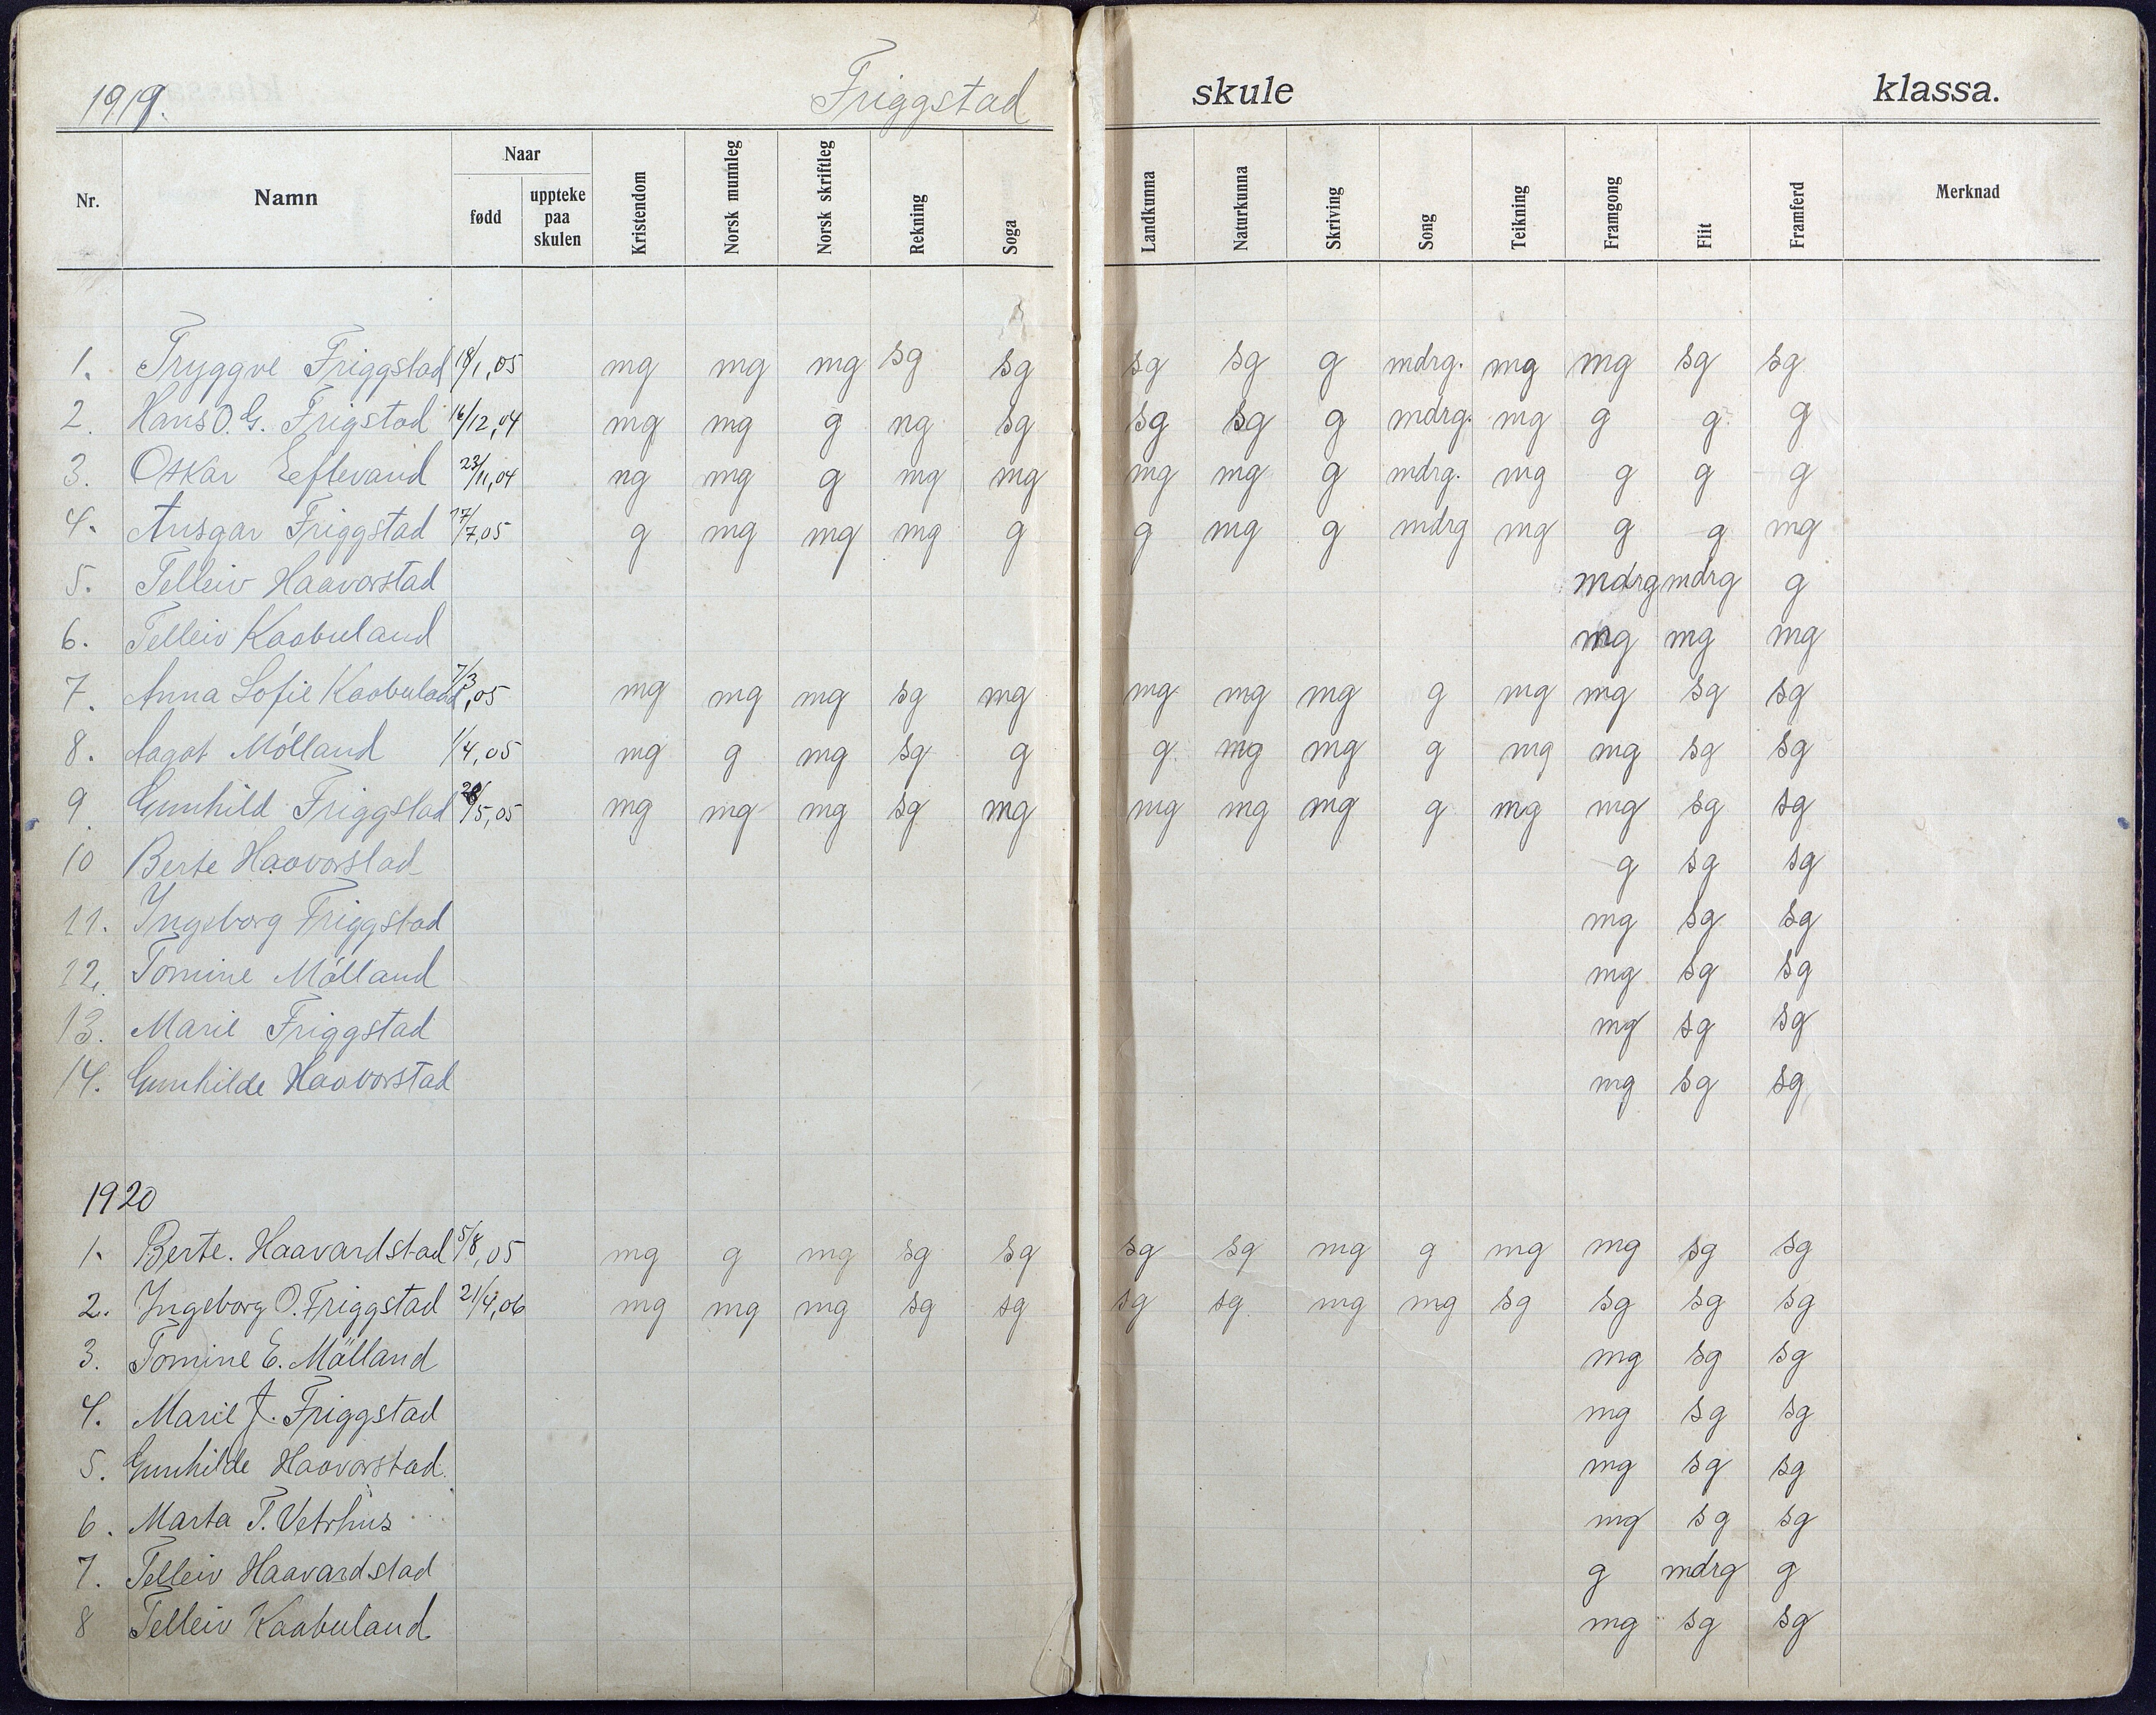 1919. Friggstad skule klassa.
Nr. Namn Naar fødd uppteke paa skulen Kristendom Norsk munnleg Norsk skriftleg Rekning Soga Landkunna Naturkunna Skriving Song Teikning Framgong Flit Framferd Merknad
1. Tryggve Friggstad 18/1,05 mg mg mg sg sg sg sg g mdrg. mg mg sg sg
2. Hans O. G. Frigstad 16/12,04 mg mg g ng sg sg sg g mdrg. mg g g g
3. Oskar Eftevand 23/11,04 ng mg g mg mg mg mg g mdrg. mg g g g
4. Ansgar Friggstad 17/7,05 g mg mg mg g g mg g mdrg mg g g mg
5. Telleiv Haavorstad mdrg mdrg g
6. Telleiv Kaabuland mg mg mg
7. Anna Sofie Kaabuland 7/3,05 mg mg mg sg mg mg mg mg g mg mg sg sg
8. Aagot Mölland 1/4,05 mg g mg sg g g mg mg g mg mg sg sg
9. Gunhild Friggstad /5,05 mg mg mg sg mg mg mg mg g mg mg sg sg
10 Berte Haavorstad g sg sg
11. Ingeborg Friggstad mg sg sg
12. Tomine Mölland mg sg sg
13. Marie Friggstad mg sg sg
14. Gunhilde Haavorstad mg sg sg
1920
1. Berte. Haavardstad 5/8,05 mg g mg sg sg sg sg mg g mg mg sg sg
2. Ingeborg O. Friggstad 21/4,06 mg mg mg sg sg sg sg. mg mg sg sg sg sg
3. Tomine E. Mölland mg sg sg
4. Marie J. Friggstad mg sg sg
5. Gunhilde Haavorstad. mg sg sg
6. Marta T. Vetrhus mg sg sg
7. Telleiv Haavardstad g mdrg g
8 Telleiv Kaabuland mg sg sg